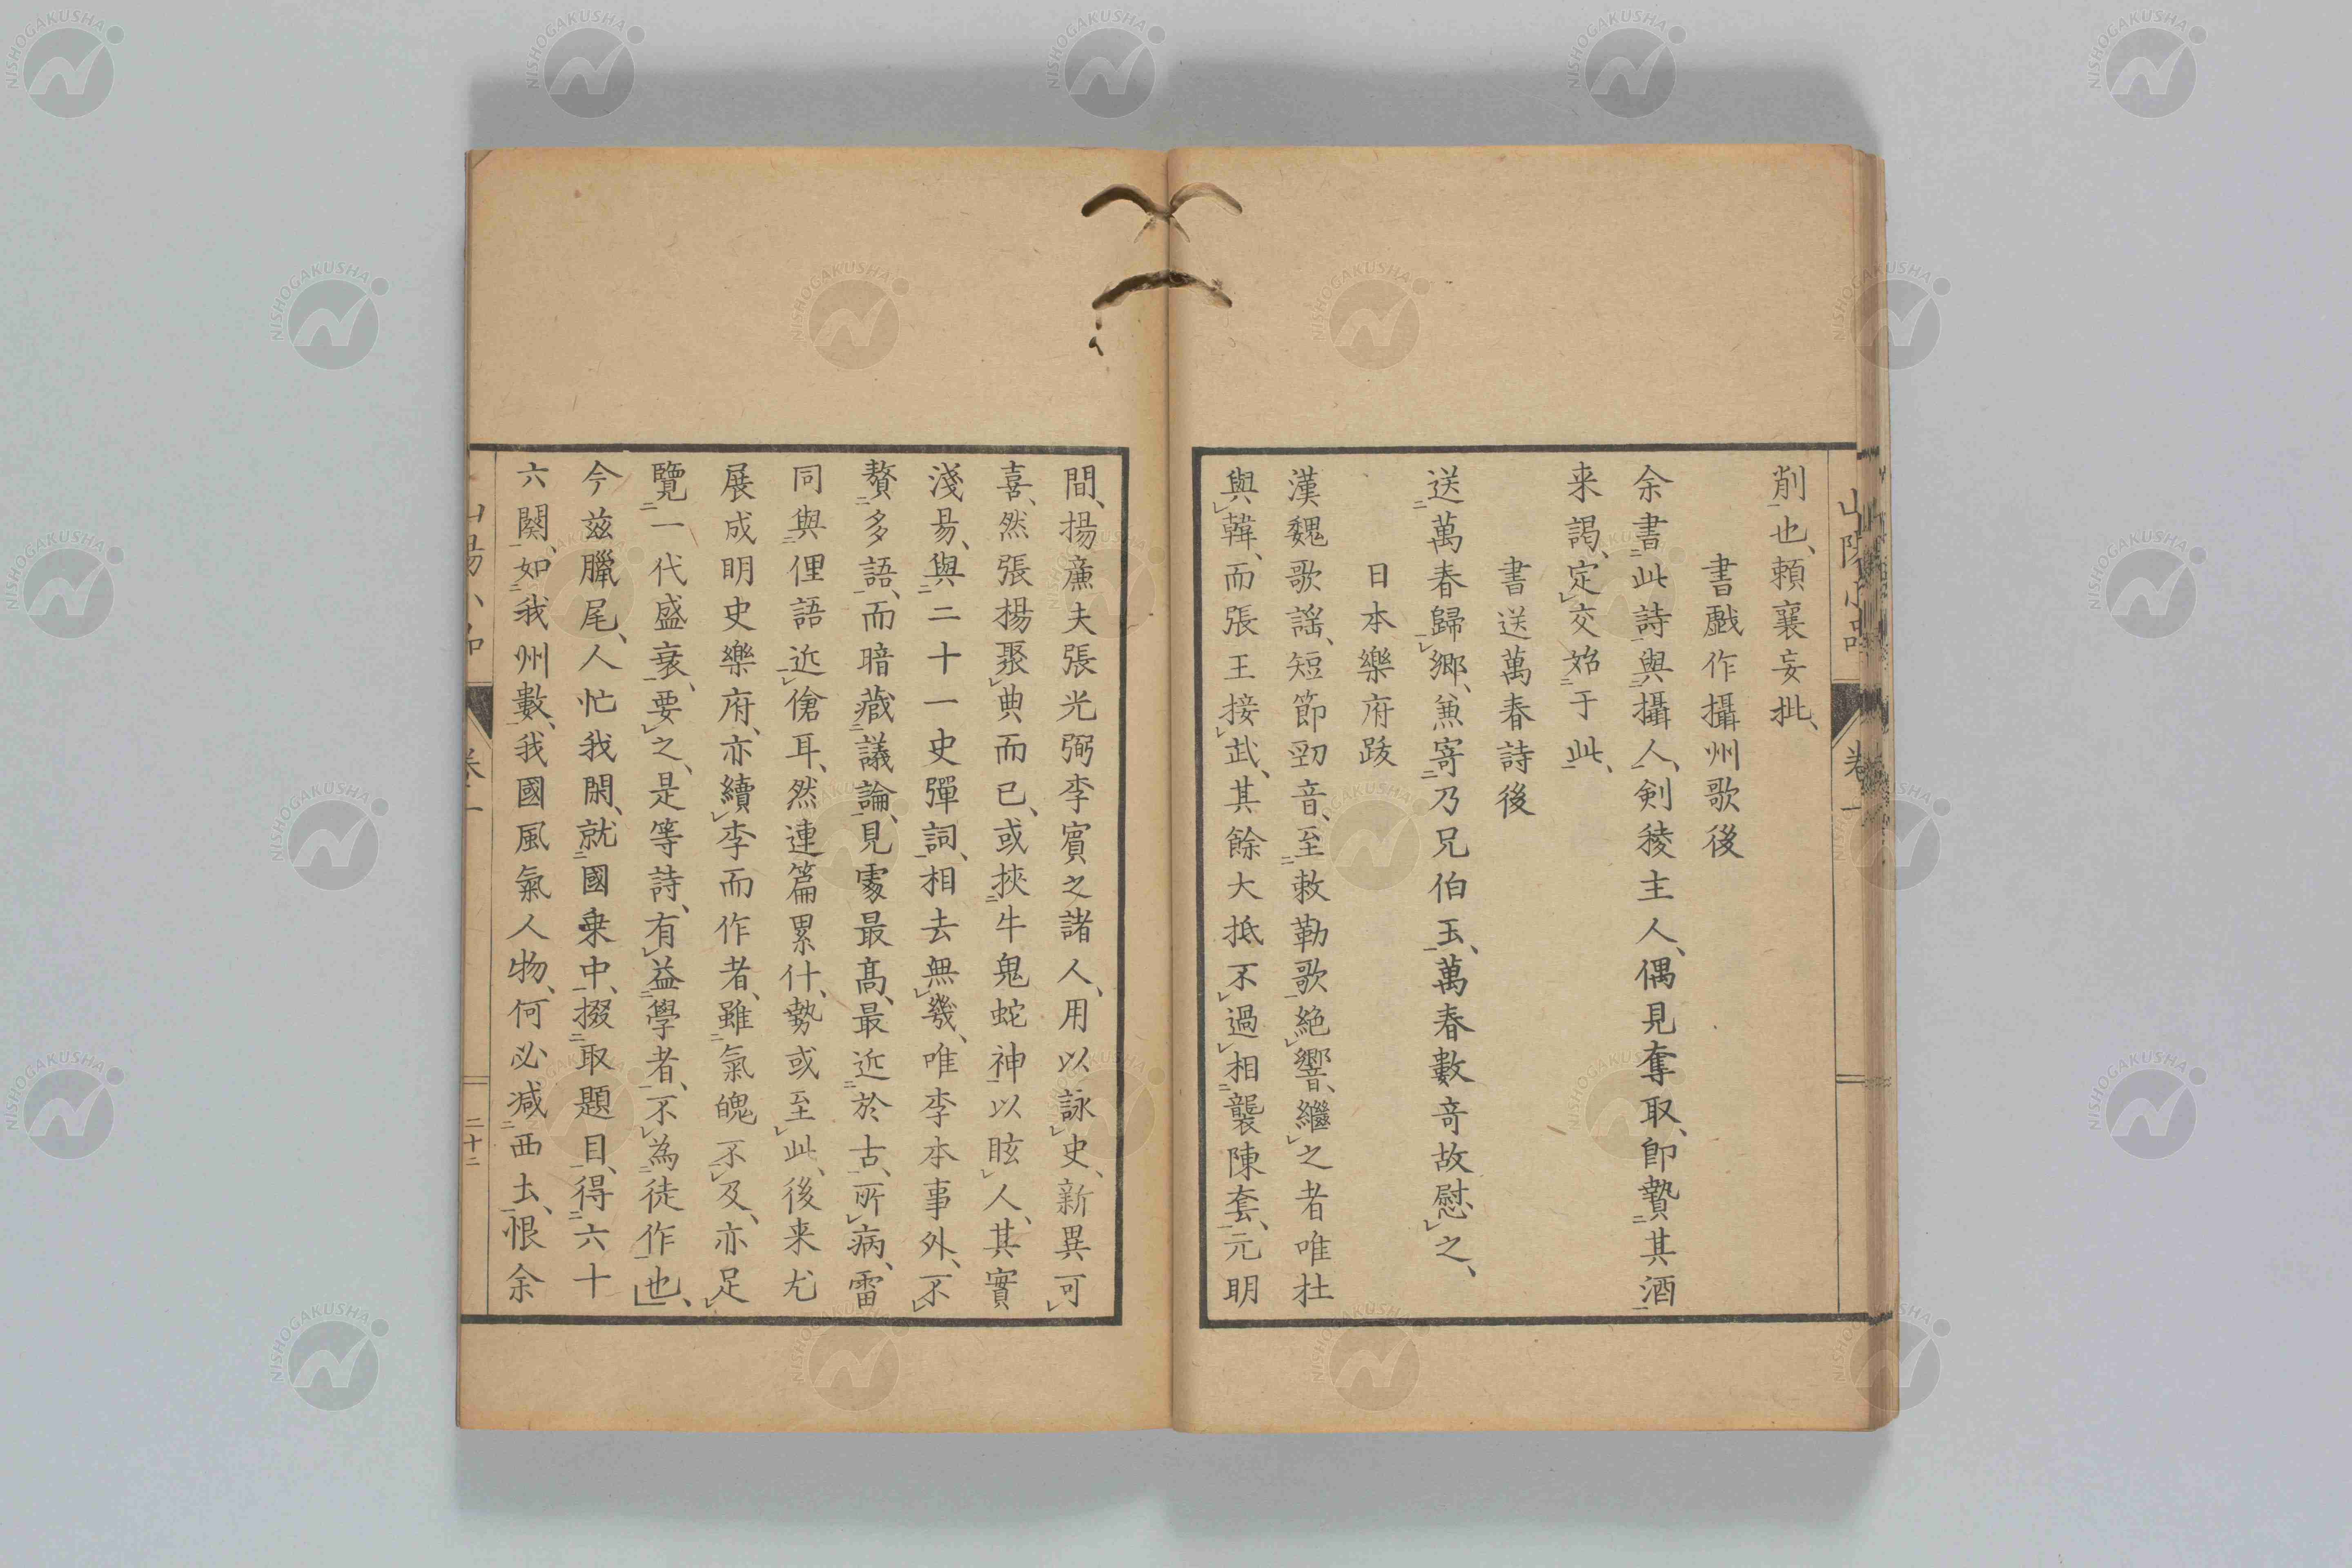 削也、頼襄妄批、
書戲作攝州歌後
余書此詩與攝人、剣稜主人、偶見奪取、卽贄其酒
来謁、定交始于此、
書送萬春詩後
送萬春歸郷、兼寄乃兄伯玉、萬春數奇故慰之、
日本樂府跋
漢魏歌謡、短節勁音、至敕勒歌絶響、繼之者唯杜
與韓、而張王接武、其餘大抵不過相襲陳套、元明
間、揚廉夫張光弼李賓之諸人、用以詠史、新異可
喜、然張揚聚典而已、或挾牛鬼蛇神以眩人、其實
淺易、與二十一史彈詞、相去無幾、唯李本事外、不
贅多語、而暗藏議論、見處最高、最近於古、所病、雷
同與俚語近傖耳、然連篇累什、勢或至此、後来尤
展成明史樂府、亦續李而作者、雖氣魄不及、亦足
覽一代盛衰、要之、是等詩、有益學者、不為徒作也、
今茲臘尾、人忙我閑、就國乗中、掇取題目、得六十
六闋、如我州數、我國風氣人物、何必減西土、恨余
卷一
二十二
NISHOGAKUSHA